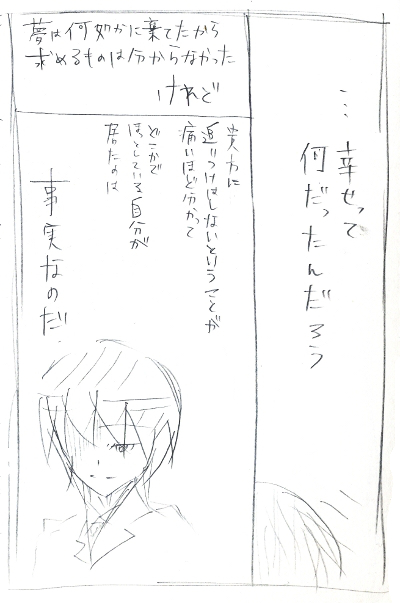 …幸せって
何だったんだろう
夢は何処かに棄てたから
求めるものは分からなかった
けれど
貴方に
近づけはしないということが
痛いほど分かって
どこかで
ほっとしている自分が
居たのは
事実なのだ。